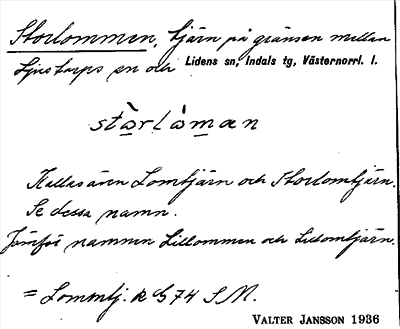 Storlommen, tjärn på gränsen mellan
Ljustorps sn och Lidens sn, Indals tg, Västernorrl. l.
stɑ̀rlàman
Kallas även Lomtjärn och Storlomtjärn.
Se dessa namn.
Jämför namnen Lillommen och Lillomtjärn.
= Lommtj. k G 74 S.M.
VALTER JANSSON 1936